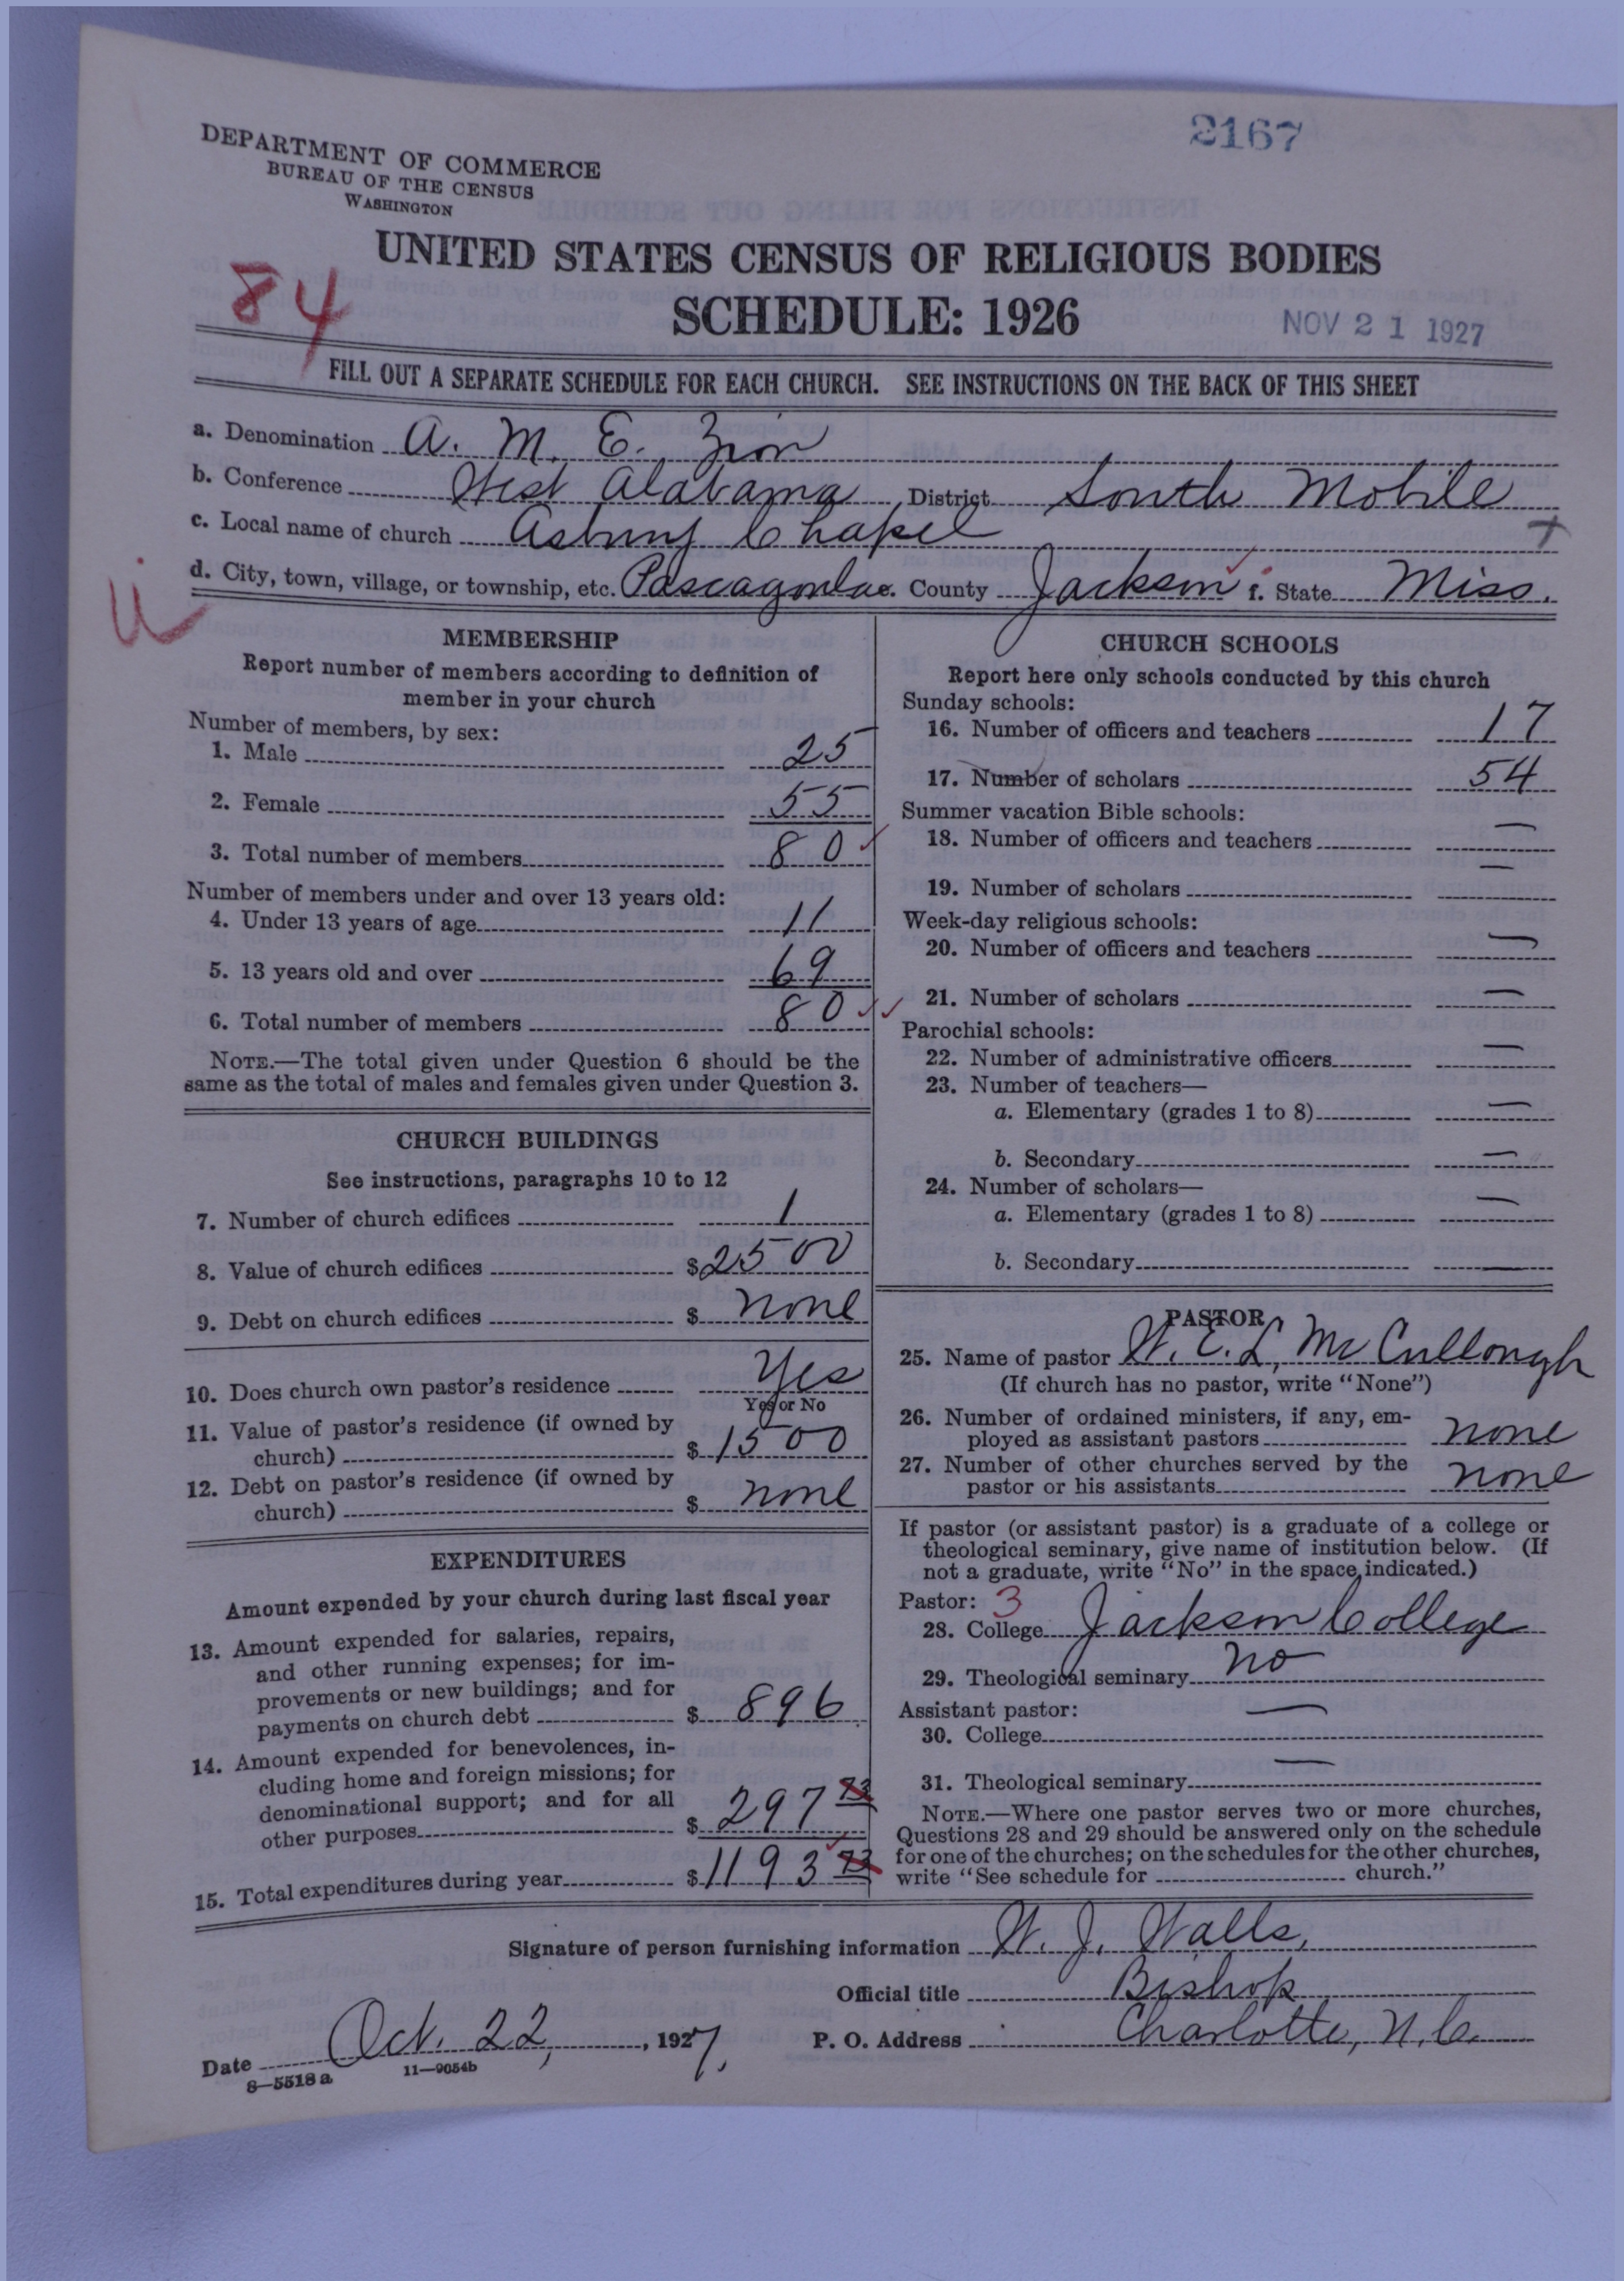 2167
DEPARTMENT OF COMMERCE
BUREAU OF THE CENSUS
WASHINGTON
UNITED STATES CENSUS OF RELIGIOUS BODIES
84
SCHEDULE: 1926
NOV 21 1927
FILL OUT A SEPARATE SCHEDULE FOR EACH CHURCH. SEE INSTRUCTIONS ON THE BACK OF THIS SHEET
a. Denomination A. M. E. Zion
b. Conference West Alabama District South Mobile
c. Local name of church Asbury Chapel
d. City, town, village, or township, etc. Pascagoula e. County Jackson f. State Miss.
MEMBERSHIP
Report number of members according to definition of
member in your church
Number of members, by sex:
1. Male 25
2. Female 55
3. Total number of members 80
Number of members under and over 13 years old:
4. Under 13 years of age 11
5. 13 years old and over 69
6. Total number of members 80
NOTE.—The total given under Question 6 should be the
same as the total of males and females given under Question 3.
CHURCH BUILDINGS
See instructions, paragraphs 10 to 12
7. Number of church edifices 1
8. Value of church edifices $2500
9. Debt on church edifices $ none
10. Does church own pastor's residence Yes
Yes or No
11. Value of pastor's residence (if owned by
church) $ 1500
12. Debt on pastor's residence (if owned by
church) $ none
EXPENDITURES
Amount expended by your church during last fiscal year
13. Amount expended for salaries, repairs,
and other running expenses; for im-
provements or new buildings; and for
payments on church debt $ 896
14. Amount expended for benevolences, in-
cluding home and foreign missions; for
denominational support; and for all
other purposes $ 297 73
15. Total expenditures during year $1193 73
CHURCH SCHOOLS
Report here only schools conducted by this church
Sunday schools:
16. Number of officers and teachers 17
17. Number of scholars 54
Summer vacation Bible schools:
18. Number of officers and teachers —
19. Number of scholars —
Week-day religious schools:
20. Number of officers and teachers —
21. Number of scholars —
Parochial schools:
22. Number of administrative officers —
23. Number of teachers—
a. Elementary (grades 1 to 8) —
b. Secondary —
24. Number of scholars—
a. Elementary (grades 1 to 8) —
b. Secondary —
PASTOR
25. Name of pastor W. E. L. McCullough
(If church has no pastor, write "None")
26. Number of ordained ministers, if any, em-
ployed as assistant pastors none
27. Number of other churches served by the
pastor or his assistants none
If pastor (or assistant pastor) is a graduate of a college or
theological seminary, give name of institution below. (If
not a graduate, write "No" in the space indicated.)
Pastor: 3
28. College Jackson College
29. Theological seminary no
Assistant pastor: —
30. College
31. Theological seminary —
NOTE.—Where one pastor serves two or more churches,
Questions 28 and 29 should be answered only on the schedule
for one of the churches; on the schedules for the other churches,
write "See schedule for church."
Signature of person furnishing information W. J. Walls,
Official title Bishop
Date Oct. 22, 1927, P. O. Address Charlotte, N.C.
8—5518 a 11—9054b